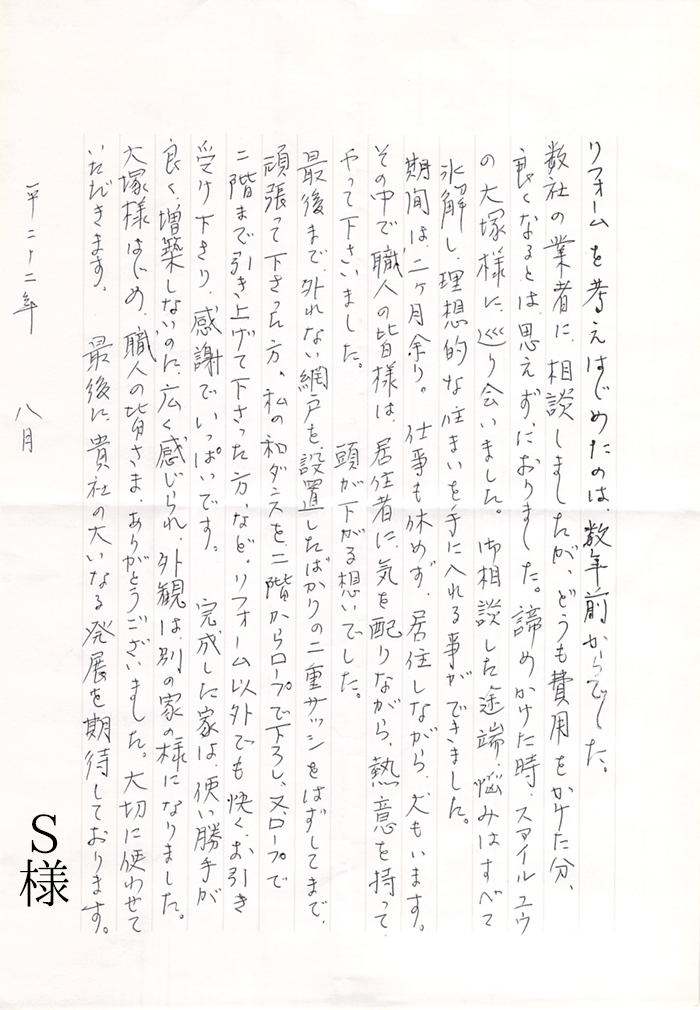 リフォームを考えはじめたのは、数年前からでした。
数社の業者に、相談しましたが、どうも費用をかけた分、
良くなるとは、思えず、におりました。諦めかけた時、スマイルユウ
の大塚様に、巡り会いました。御相談した途端、悩みはすべて
氷解し、理想的な住まいを手に入れる事ができました。
期間は、二ヶ月余り。仕事も休めず、居住しながら、犬もいます。
その中で、職人の皆様は、居住者に、気を配りながら、熱意を持って、
やって下さいました。頭が下がる想いでした。
最後まで、外れない網戸を、設置したばかりの二重サッシをはずしてまで、
頑張って下さった方。私の和ダンスを、二階からロープで下ろし、又、ロープで
二階まで引き上げて下さった方、など。リフォーム以外でも快く、お引き
受け下さり、感謝でいっぱいです。完成した家は、使い勝手が
良く、増築しないのに、広く感じられ、外観は、別の家の様になりました。
大塚様はじめ、職人の皆さま、ありがとうございました。大切に使わせて
いただきます。最後に、貴社の大いなる発展を期待しております。
平二十二年 八月
S様